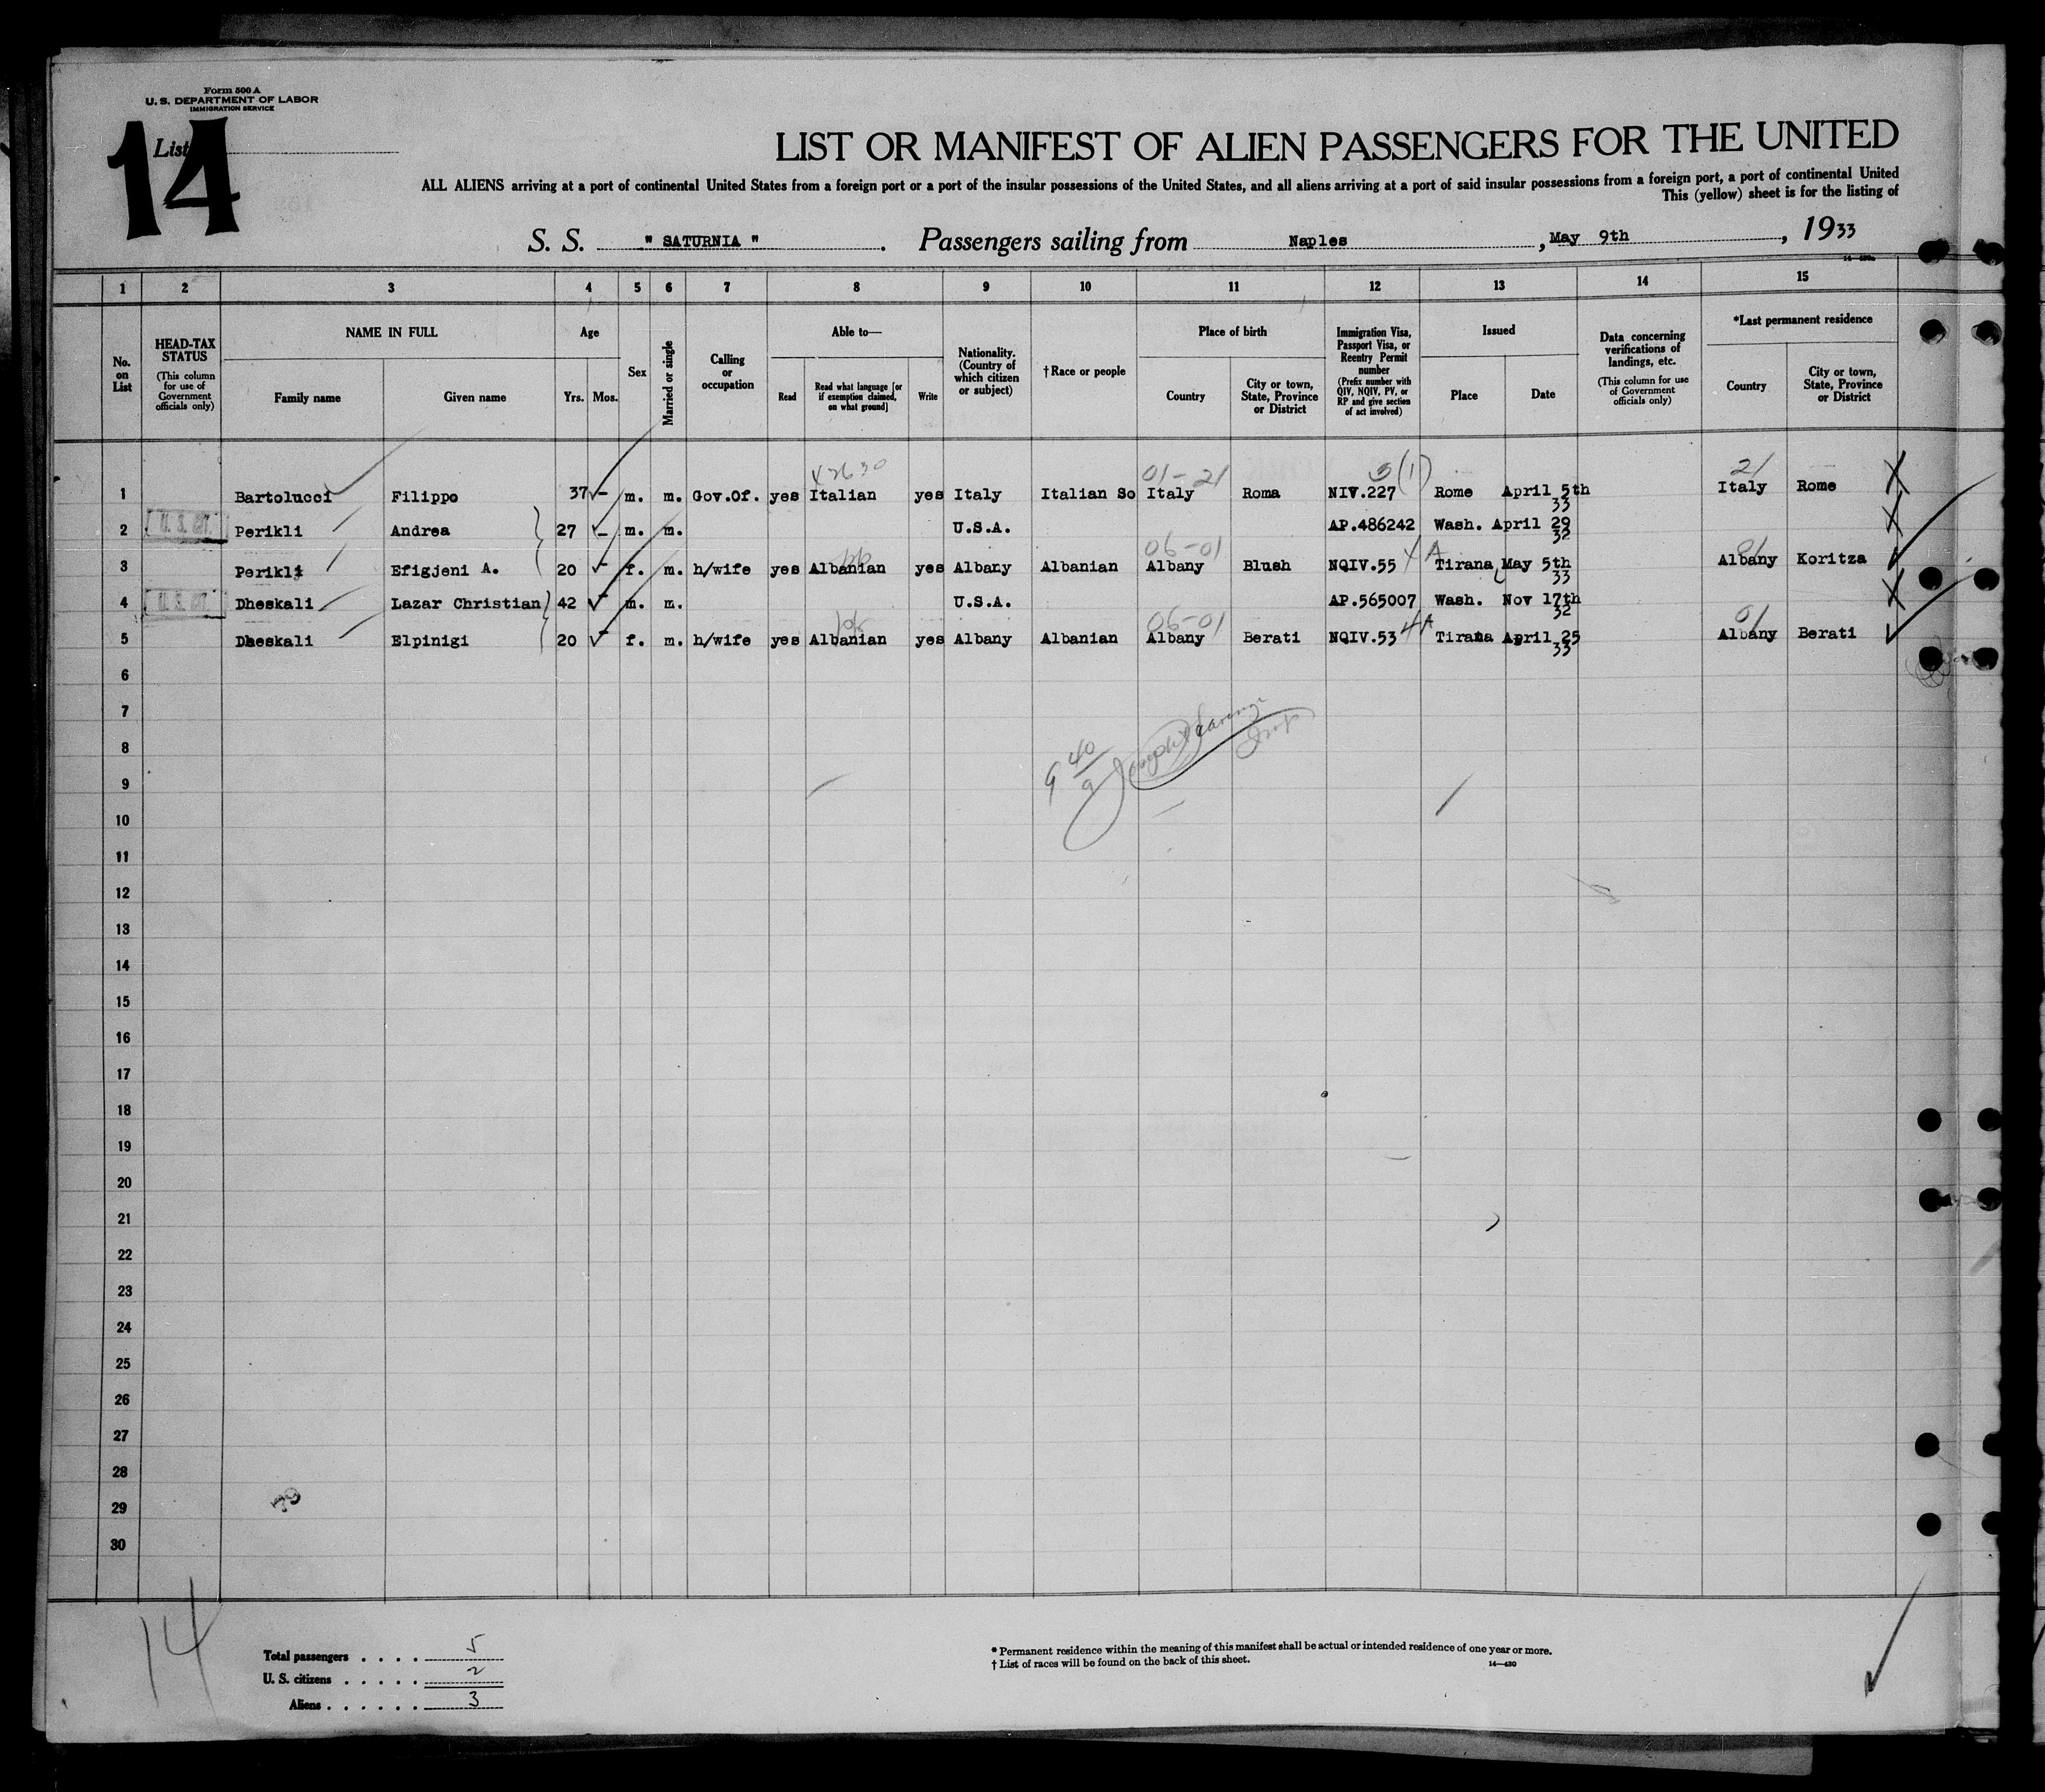 Form 500 A
U. S. DEPARTMENT OF LABOR
IMMIGRATION SERVICE
List 14
LIST OR MANIFEST OF ALIEN PASSENGERS FOR THE UNITED
ALL ALIENS arriving at a port of continental United States from a foreign port or a port of the insular possessions of the United States, and all aliens arriving at a port of said insular possessions from a foreign port, a port of continental United
This (yellow) sheet is for the listing of
S. S. " SATURNIA ". Passengers sailing from Naples, May 9th, 1933
1 2 3 4 5 6 7 8 9 10 11 12 13 14 15
No. on List
HEAD-TAX STATUS (This column for use of Government officials only)
NAME IN FULL
Family name Given name
Age
Yrs. Mos.
Sex
Married or single
Calling or occupation
Able to—
Read Read what language [or if exemption claimed, on what ground] Write
Nationality. (Country of which citizen or subject)
† Race or people
Place of birth
Country City or town, State, Province or District
Immigration Visa, Passport Visa, or Reentry Permit number (Prefix number with QIV, NQIV, PV, or RP and give section of act involved)
Issued
Place Date
Data concerning verifications of landings, etc. (This column for use of Government officials only)
*Last permanent residence
Country City or town, State, Province or District
42630 01-21 3(1) 21
1 Bartolucci Filippo 37 - m. m. Gov.Of. yes Italian yes Italy Italian So Italy Roma NIV.227 Rome April 5th 33 Italy Rome
2 U. S. CIT. Perikli Andrea 27 - m. m. U.S.A. AP.486242 Wash. April 29 32
06-01 4A 01
3 Perikli Efigjeni A. 20 - f. m. h/wife yes Albanian yes Albany Albanian Albany Blush NQIV.55 Tirana May 5th 33 Albany Koritza
4 U. S. CIT. Dheskali Lazar Christian 42 - m. m. U.S.A. AP.565007 Wash. Nov 17th 32
06-01 4A 01
5 Dheskali Elpinigi 20 - f. m. h/wife yes Albanian yes Albany Albanian Albany Berati NQIV.53 Tirana April 25 33 Albany Berati
6
7
8
9
10
11
12
13
14
15
16
17
18
19
20
21
22
23
24
25
26
27
28
29
30
14
Total passengers . . . . 5
U. S. citizens . . . . . 2
Aliens . . . . . . 3
* Permanent residence within the meaning of this manifest shall be actual or intended residence of one year or more.
† List of races will be found on the back of this sheet.
14—430